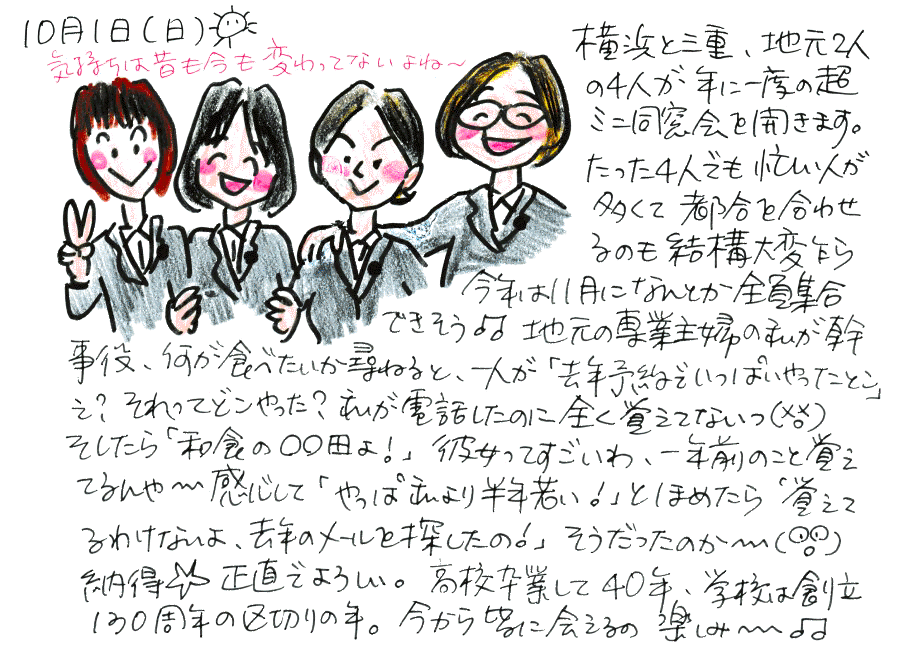 10月1日(日)
気持ちは昔も今も変わってないよね〜
横浜と三重、地元2人
の4人が年に一度の超
ミニ同窓会を開きます。
たった4人でも忙しい人が
多くて都合を合わせ
るのも結構大変だから
今年は11月になんとか全員集合
できそう♫ 地元の専業主婦の私が幹
事役、何が食べたいか尋ねると、一人が「去年予約でいっぱいやったとこ」
え?それってどこやった?私が電話したのに全く覚えてないっ(××)
そしたら「和食の〇〇田よ!」彼女ってすごいわ、一年前のこと覚え
てるんや〜感じして「やっぱ私より半年若い!」とほめたら「覚えて
るわけないよ、去年のメールを探したの!」そうだったのか〜
納得☆正直でよろしい。高校卒業して40年、学校は創立
130周年の区切りの年。今から皆に会えるの楽しみ〜♫